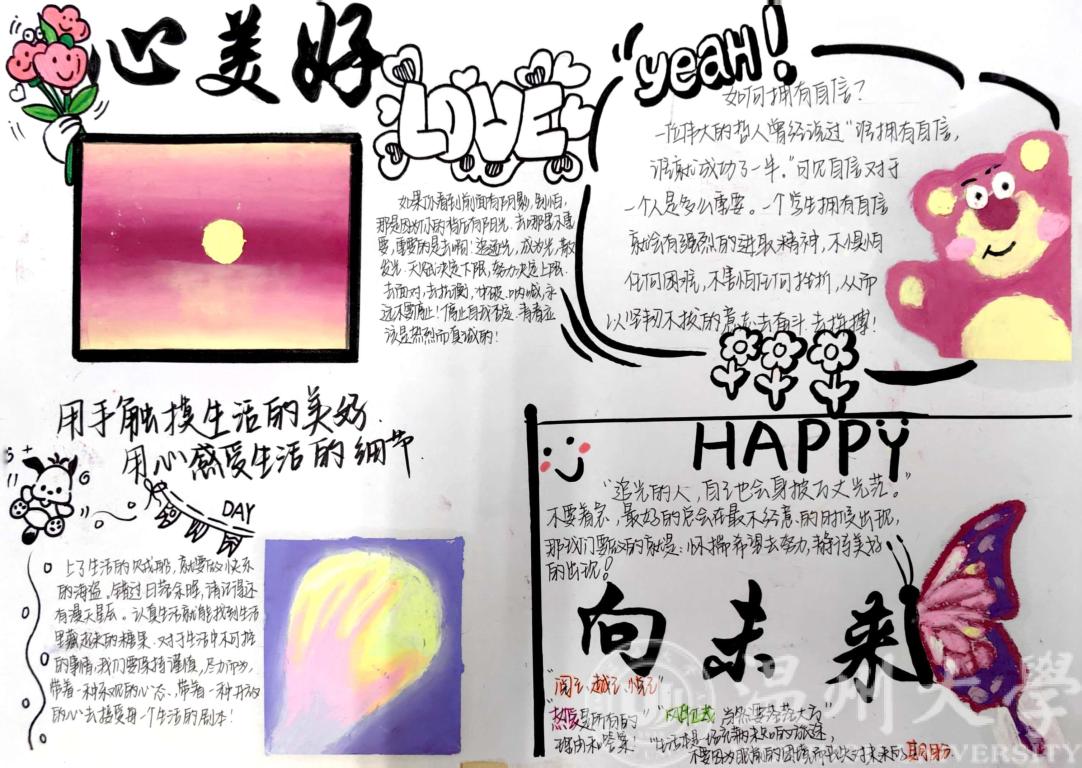 心美好
LOVE
如果你看到前面有阴影,别怕,
那是因为你的背后有阳光。去哪里不重
要,重要的是去啊!追逐光,成为光,散
发光.天赋决定下限,努力决定上限.
去面对,去抗衡,冲破,呐喊,永
远不要停止!停止自我否定.青春应
该是热烈而真诚的!
yeah!
如何拥有自信?
一位伟大的哲人曾经说过“谁拥有自信,
谁就成功了一半。”可见自信对于
一个人是多么重要。一个学生拥有自信
就会有强烈的进取精神,不惧怕
任何困难,不害怕任何挫折,从而
以坚韧不拔的意志去奋斗.去拼搏!
用手触摸生活的美好.
用心感受生活的细节.
DAY
上了生活的贼船,就要做快乐
的海盗。错过日落余晖,请记得还
有漫天星辰。认真生活就能找到生活
里藏起来的糖果.对于生活中不可控
的事情,我们要保持谨慎,尽力而为,
带着一种乐观的心态、带着一种开放
的心去接受每个生活的剧本!
HAPPY
“追光的人,自己也会身披万丈光芒。”
不要着急,最好的总会在最不经意的时候出现,
那我们要做的就是:怀揣希望去努力,静待美好
的出现!
向未来
“热爱是所有的
理由和答案”
当然要荣花大方”
不要因为眼前的困境而
期盼
温州大学
UNIVERSITY